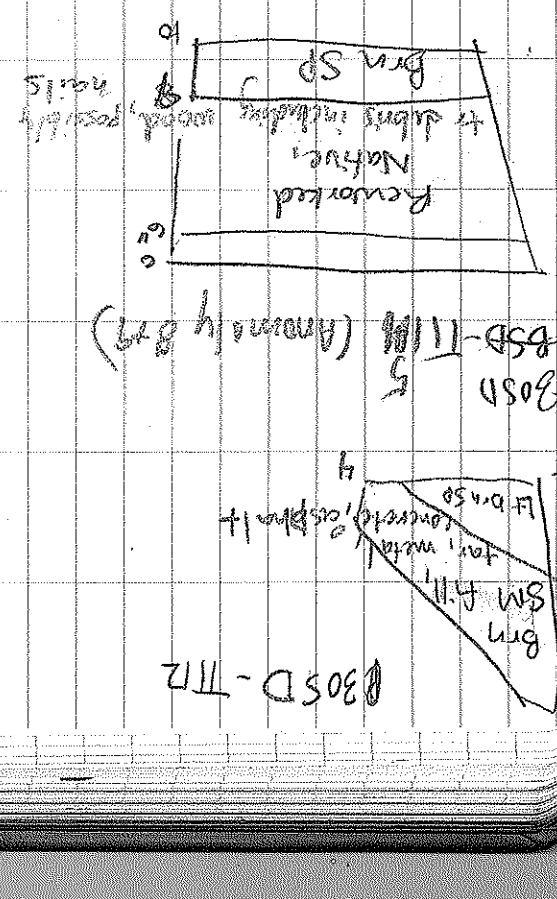 BOSD-TT12
Brn
SM fill,
tar, metal
concrete, asphalt
Lt brn SP
4
BOSD
5
BSD-TT11 (Anomaly 8 &9)
0
6"
Reworked
Native,
tr debris including wood, possibly
nails
8
Brn SP
10